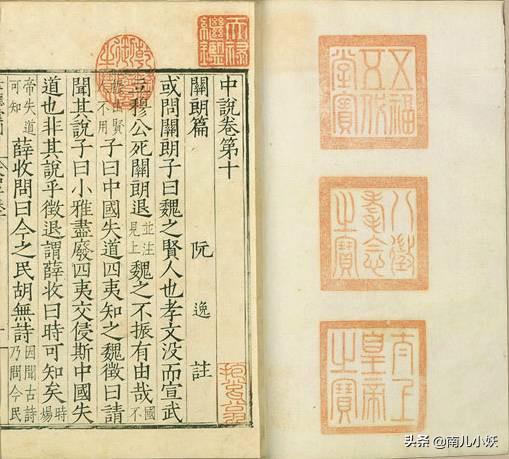 中說卷第十
關朗篇 阮逸註
或問關朗子曰魏之賢人也孝文没而宣武
立穆公死關朗退並注見上魏之不振有由哉國不
振由賢不用子曰中國失道四夷知之魏徵曰請
聞其說子曰小雅盡廢四夷交侵斯中國失
道也非其說乎徵退謂薛收曰時可知矣時煬
帝失道可知薛收問曰今之民胡無詩因聞古詩乃問今民
天祿繼鑑
乾隆御覽之寶
五福五代堂寶
八徵耄念之寶
太上皇帝之寶
头条 @南儿小妖